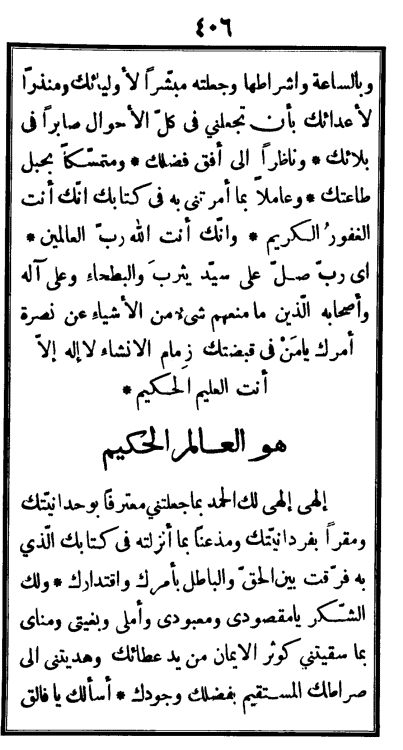 ٤٠٦
وبالساعة واشراطها وجعلته مبشّراً لأوليائك ومنذراً
لأعدائك بأن تجعلني في كلّ الأحوال صابراً في
بلائك * وناظراً الى أفق فضلك * ومتمسّكاً بحبل
طاعتك * وعاملاً بما أمرتني به في كتابك انّك أنت
الغفورُ الكريم * وانّك أنت الله ربّ العالمين *
اى ربّ صلّ على سيّد يثربَ والبطحاء وعلى آله
وأصحابه الّذين ما منعهم شىء من الأشياء عن نصرة
أمرك يامَنْ في قبضتك زِمام الانشاء لا إله إلاّ
أنت العليم الحكيم *
هو العالم الحكيم
إلهى إلهى لك الحمد بما جعلتني معترفًا بوحدانيّتك
ومقراً بفردانيّتك ومذعنًا بما أنزلته في كتابك الّذي
به فرّقت بين الحقّ والباطل بأمرك واقتدارك * ولك
الشّكر يامقصودى ومعبودى وأملى وبغيتى ومناى
بما سقيتني كوثر الايمان من يد عطائك وهديتنى الى
صراطك المستقيم بفضلك وجودك * أسألك يا فالق